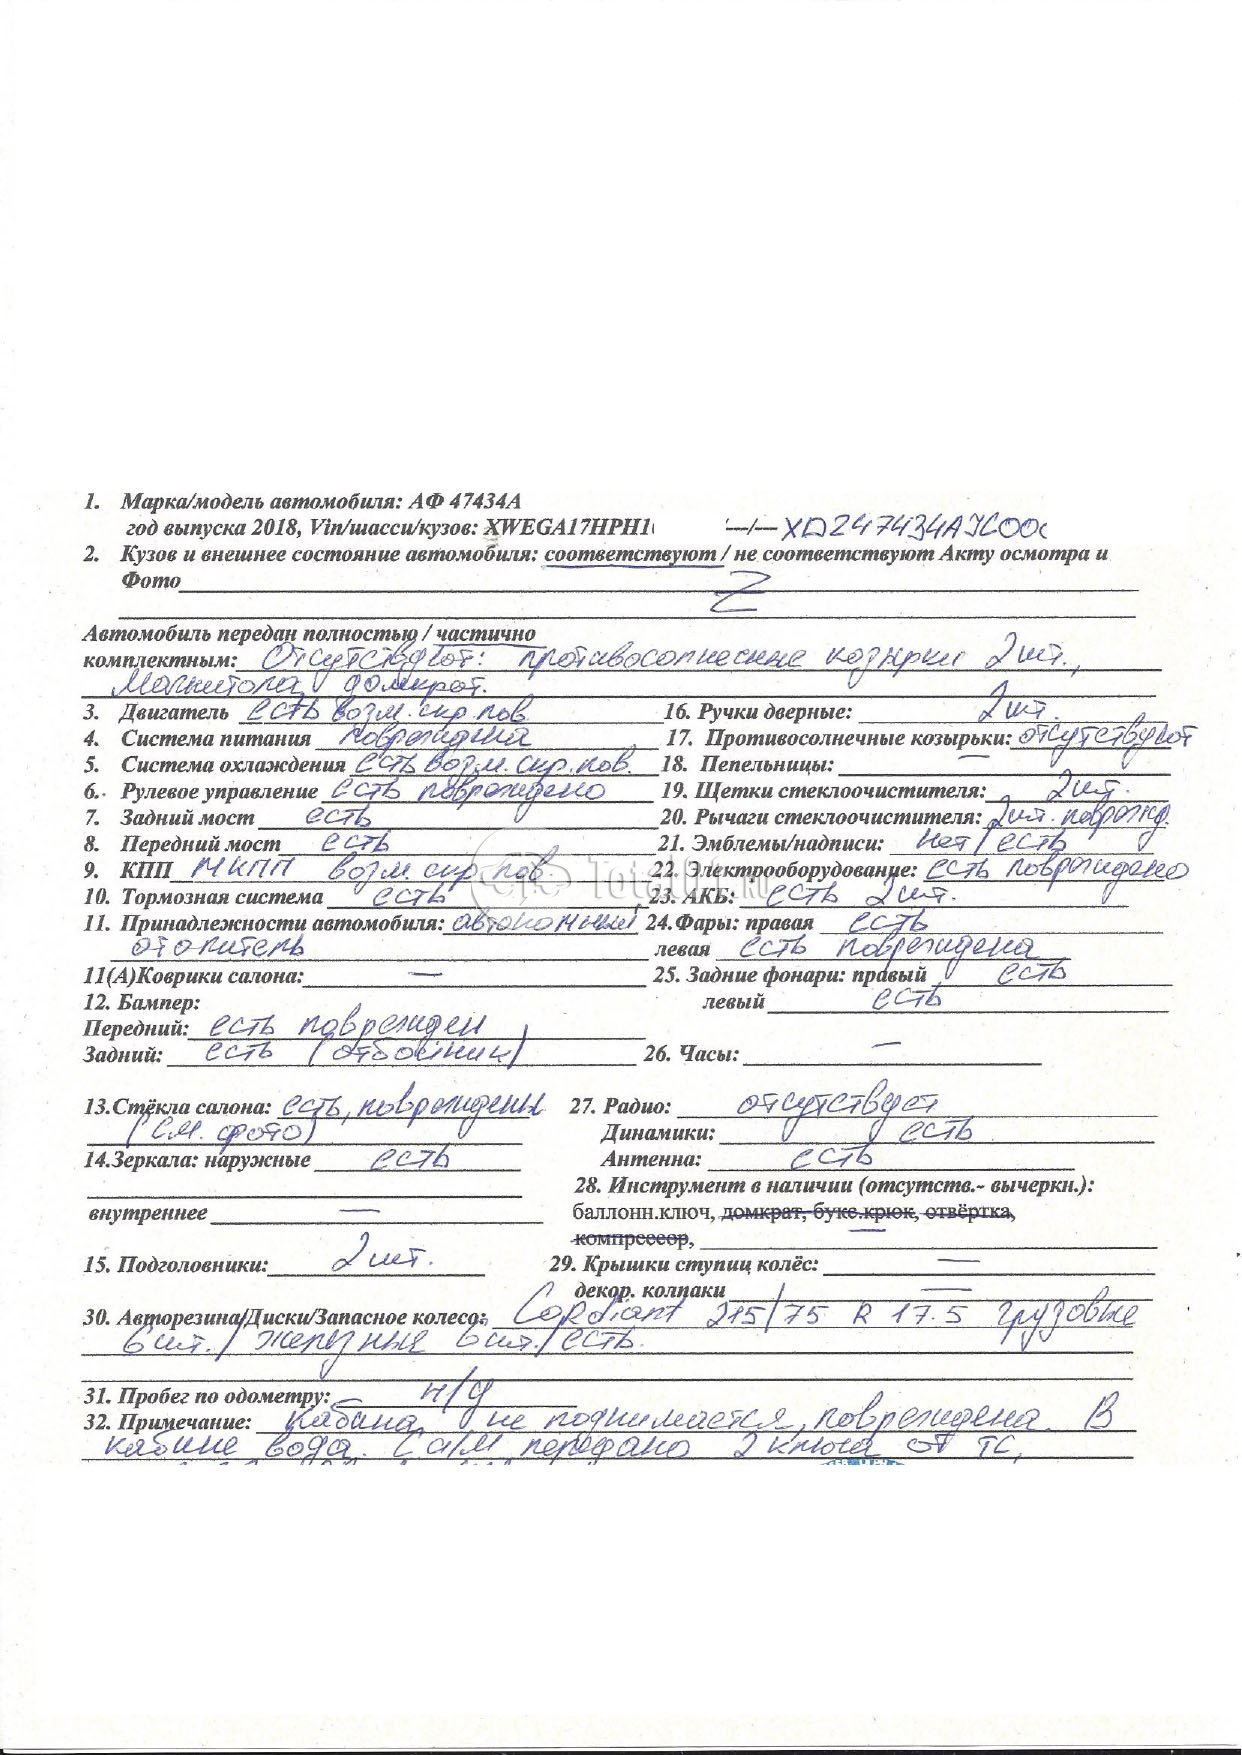 1. Марка/модель автомобиля: АФ 47434А
год выпуска 2018, Vin/шасси/кузов: XWEGA17HPH1 —/— XD247434AJC00
2. Кузов и внешнее состояние автомобиля: соответствуют / не соответствуют Акту осмотра и
Фото
Z
Автомобиль передан полностью / частично
комплектным: Отсутствуют: противосолнечные козырки 2 шт.,
Магнитола, домкрат.
3. Двигатель есть возм. скр. пов. 16. Ручки дверные: 2 шт.
4. Система питания повреждена 17. Противосолнечные козырьки: отсутствуют
5. Система охлаждения есть возм. скр. пов. 18. Пепельницы: —
6. Рулевое управление есть повреждено 19. Щетки стеклоочистителя: 2 шт.
7. Задний мост есть 20. Рычаги стеклоочистителя: 2 шт. поврежд.
8. Передний мост есть 21. Эмблемы/надписи: нет / есть
9. КПП МКПП возм. скр. пов. 22. Электрооборудование: есть повреждено
Total01.ru
10. Тормозная система есть 23. АКБ: есть 2 шт.
11. Принадлежности автомобиля: автономный 24. Фары: правая есть
отопитель левая есть повреждена
11(А)Коврики салона: — 25. Задние фонари: правый есть
12. Бампер: левый есть
Передний: есть поврежден
Задний: есть (отбойник) 26. Часы: —
13.Стёкла салона: есть, повреждены 27. Радио: отсутствует
(см. фото) Динамики: есть
14.Зеркала: наружные есть Антенна: есть
28. Инструмент в наличии (отсутств.- вычеркн.):
внутреннее — баллонн.ключ, домкрат, букс.крюк, отвёртка,
компрессор, —
15. Подголовники: 2 шт. 29. Крышки ступиц колёс: —
декор. колпаки —
30. Авторезина/Диски/Запасное колесо: Cordiant 215/75 R 17.5 грузовые
6 шт. / железные 6 шт. / есть.
31. Пробег по одометру: — н/д
32. Примечание: Кабина не поднимается, повреждена. В
кабине вода. С а/м передано 2 ключа от ТС,